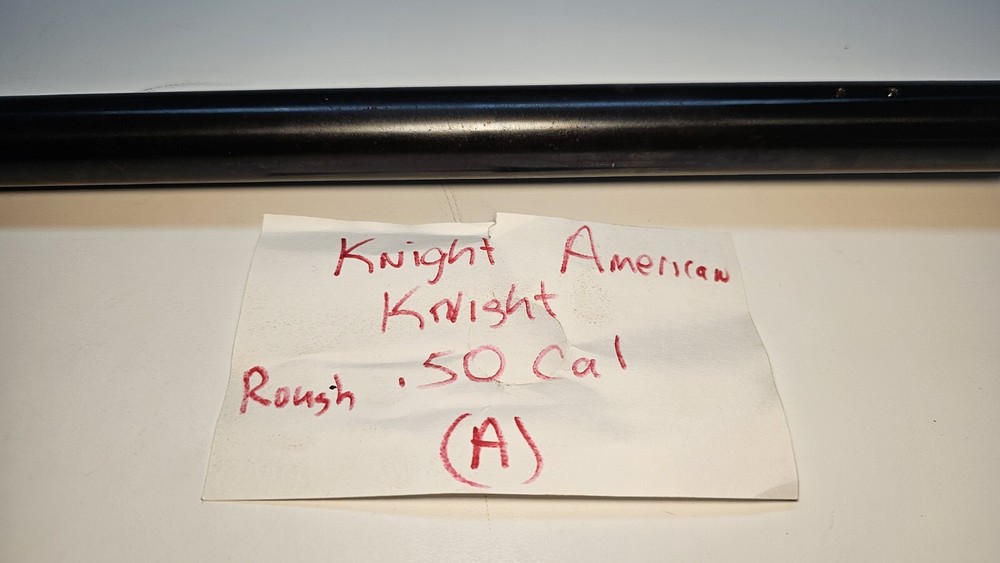 Knight American
Knight
Rough .50 Cal
(A)